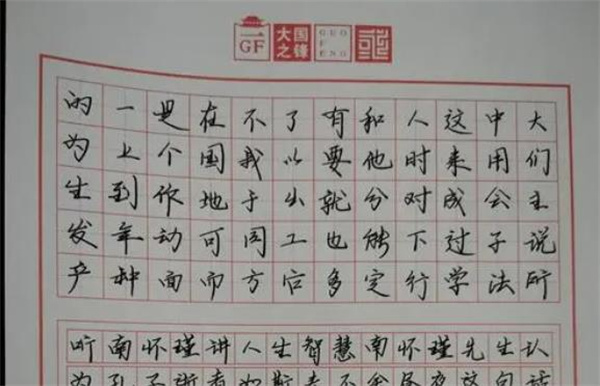 GF 大国
之锋 GUO
F
ENG
的一是在不了有和人这中大
为上个国我以要他时来用们
生到作地于出就分对成会主
发年动可同工也能下过子说
产种面而方后多定行学法所
听南怀瑾讲人生智慧南怀瑾先生认
为孔子逝者如斯夫不舍昼夜这句话